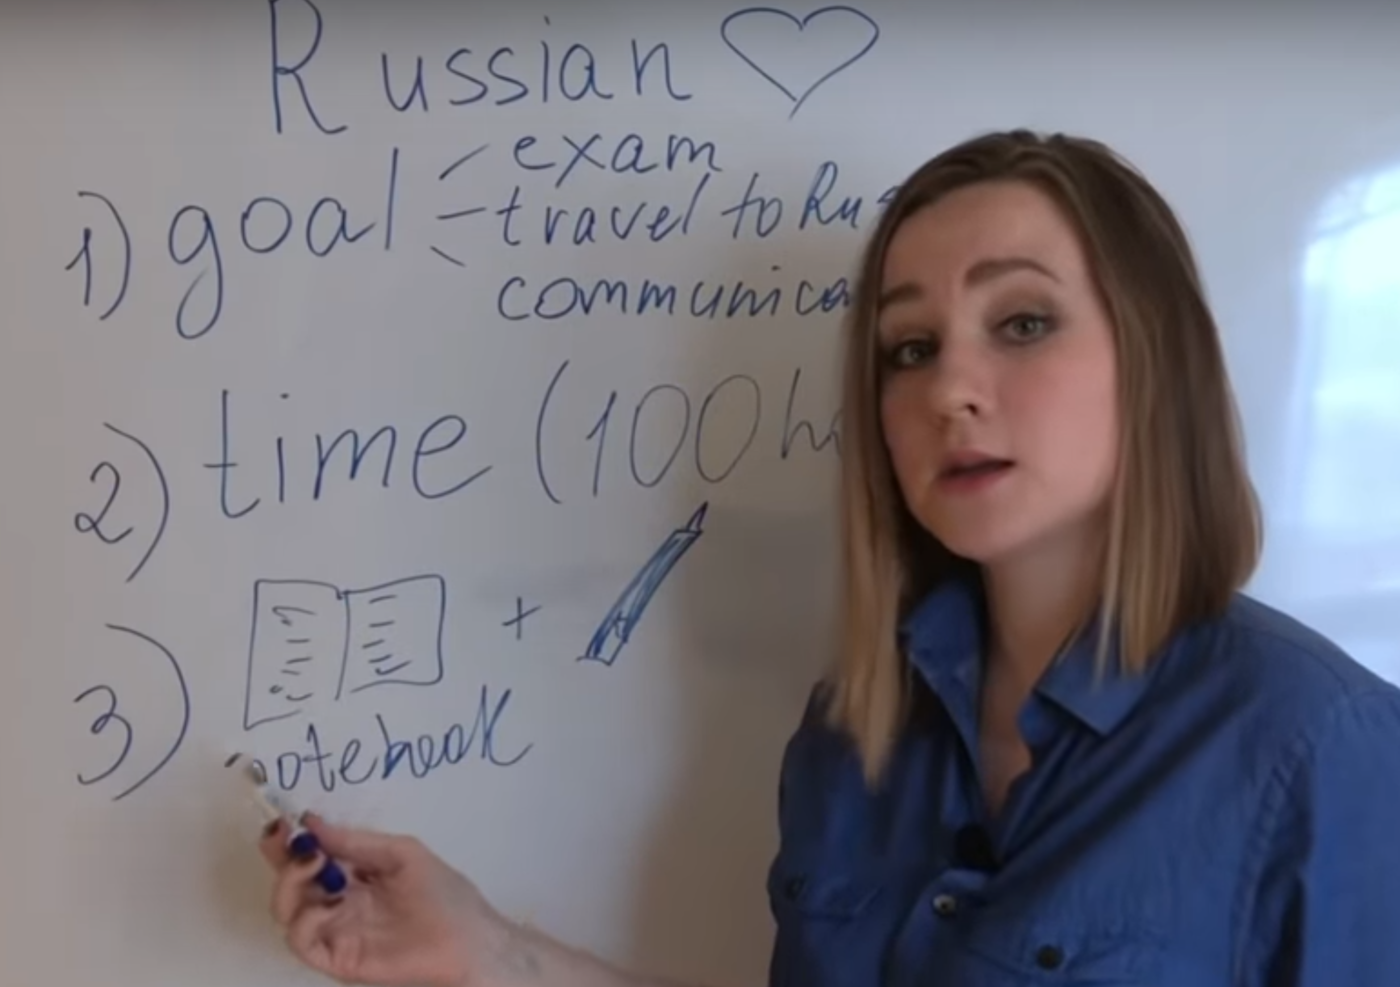 Russian
exam
1) goal travel to Rus
communica
2) time (100 h
3)
+
notebook